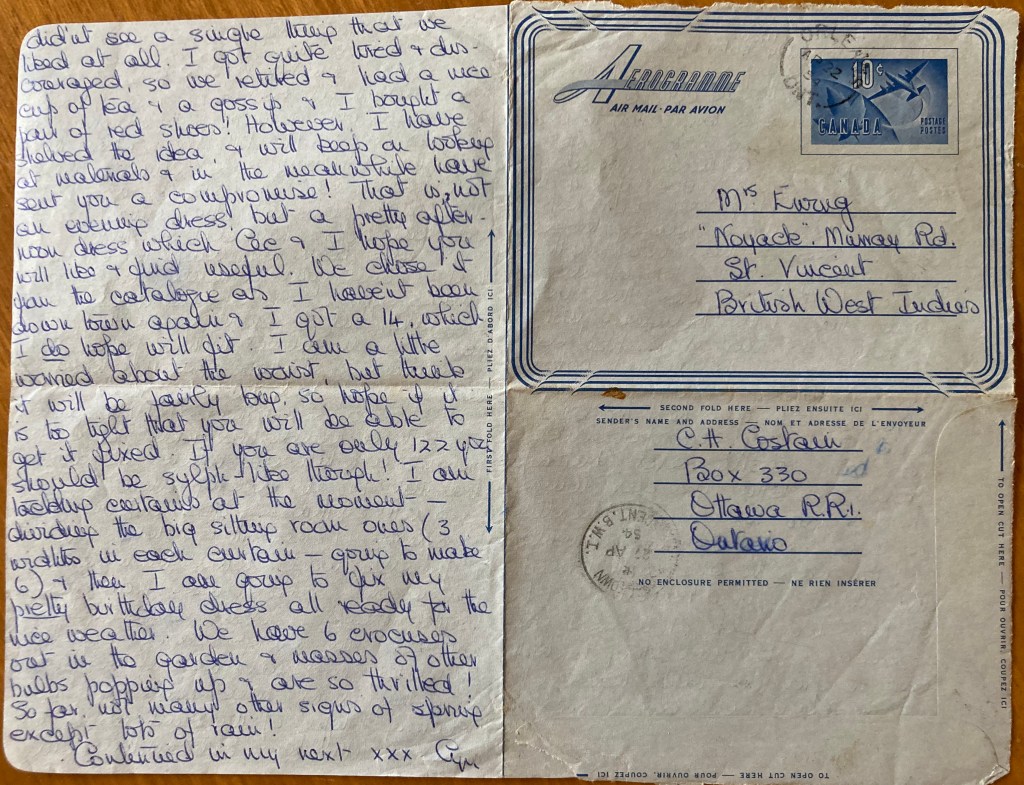 didn't see a single thing that we
liked at all. I got quite bored & dis-
couraged, so we retired & had a nice
cup of tea & a gossip & I bought a
pair of red shoes! However, I have
shelved the idea, & will keep on looking
at materials & in the meanwhile have
sent you a compromise! That is, not
an evening dress, but a pretty after-
noon dress which Cec & I hope you
will like & find useful. We chose it
from the catalogue as I haven't been
down town again & I got a 14, which
I do hope will fit. I am a little
worried about the waist, but think
it will be fairly long, so hope if it
is too tight that you will be able to
get it fixed. If you are only 122 you
should be sylph-like though! I am
tackling curtains at the moment —
dividing the big sitting room ones (3
widths in each curtain — going to make
6) & then I am going to fix my
pretty birthday dress all ready for the
nice weather. We have 6 crocuses
out in the garden & masses of other
bulbs popping up & are so thrilled!
So far not many other signs of spring
except lots of rain!
Continued in my next xxx
FIRST FOLD HERE — PLIEZ D'ABORD ICI
AEROGRAMME
AIR MAIL · PAR AVION
10¢
CANADA
POSTAGE
POSTES
Mrs Ewing
"Noyack", Murray Rd.
St. Vincent
British West Indies
SECOND FOLD HERE — PLIEZ ENSUITE ICI
SENDER'S NAME AND ADDRESS — NOM ET ADRESSE DE L'ENVOYEUR
C.H. Costain
Box 330
Ottawa R.R.1.
Ontario
NO ENCLOSURE PERMITTED — NE RIEN INSÉRER
TO OPEN CUT HERE — POUR OUVRIR, COUPEZ ICI
TO OPEN CUT HERE — POUR OUVRIR, COUPEZ ICI